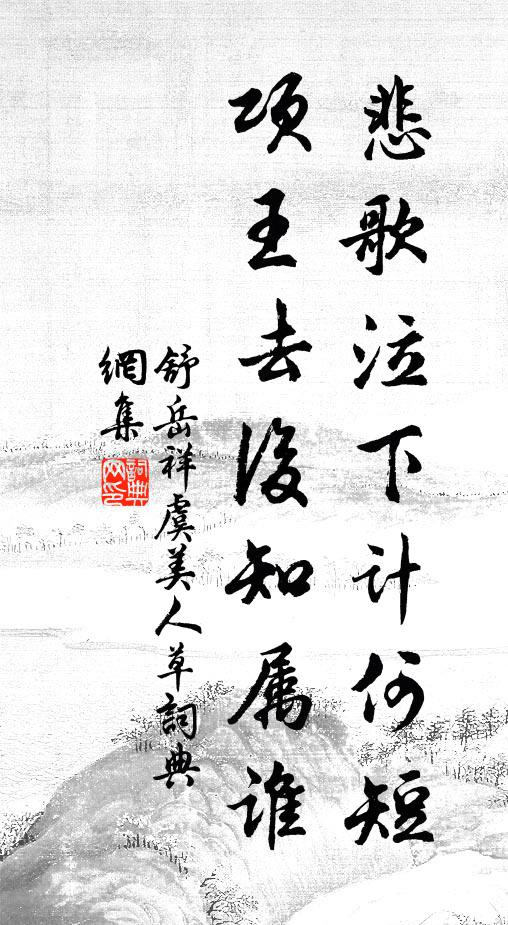 悲歌泣下计何短
项王去後知属谁
舒岳祥虞美人草詞典
網集
詞典网印